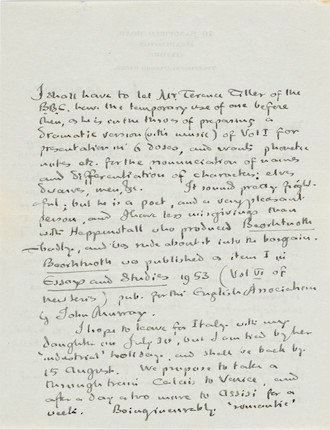 I shall have to let Mr Terence Tiller of the
BBC. have the temporary use of one before
then, as he is in the throes of preparing a
dramatic version (with music) of Vol I for
presentation in 6 doses, and wants phonetic
notes etc. for the pronunciation of names
and differentiation of character: elves
dwarves, men &c. It sounds pretty fright-
ful; but he is a poet, and a very pleasant
person, and I have less misgivings than
with Happenstall who produced Beorhtnoth
badly, and was rude about it into the bargain.
Beorhtnoth was published as item I in
Essays and Studies 1953 (Vol VI of
new series) pub. for the English Association
by John Murray.
I hope to leave for Italy with my
daughter on July 30, but I am tied by her
'industrial' holiday, and shall be back by
15 August. We propose to take a
through train Calais to Venice, and
after a day or two move to Assisi for a
week. Being incurably 'romantic'